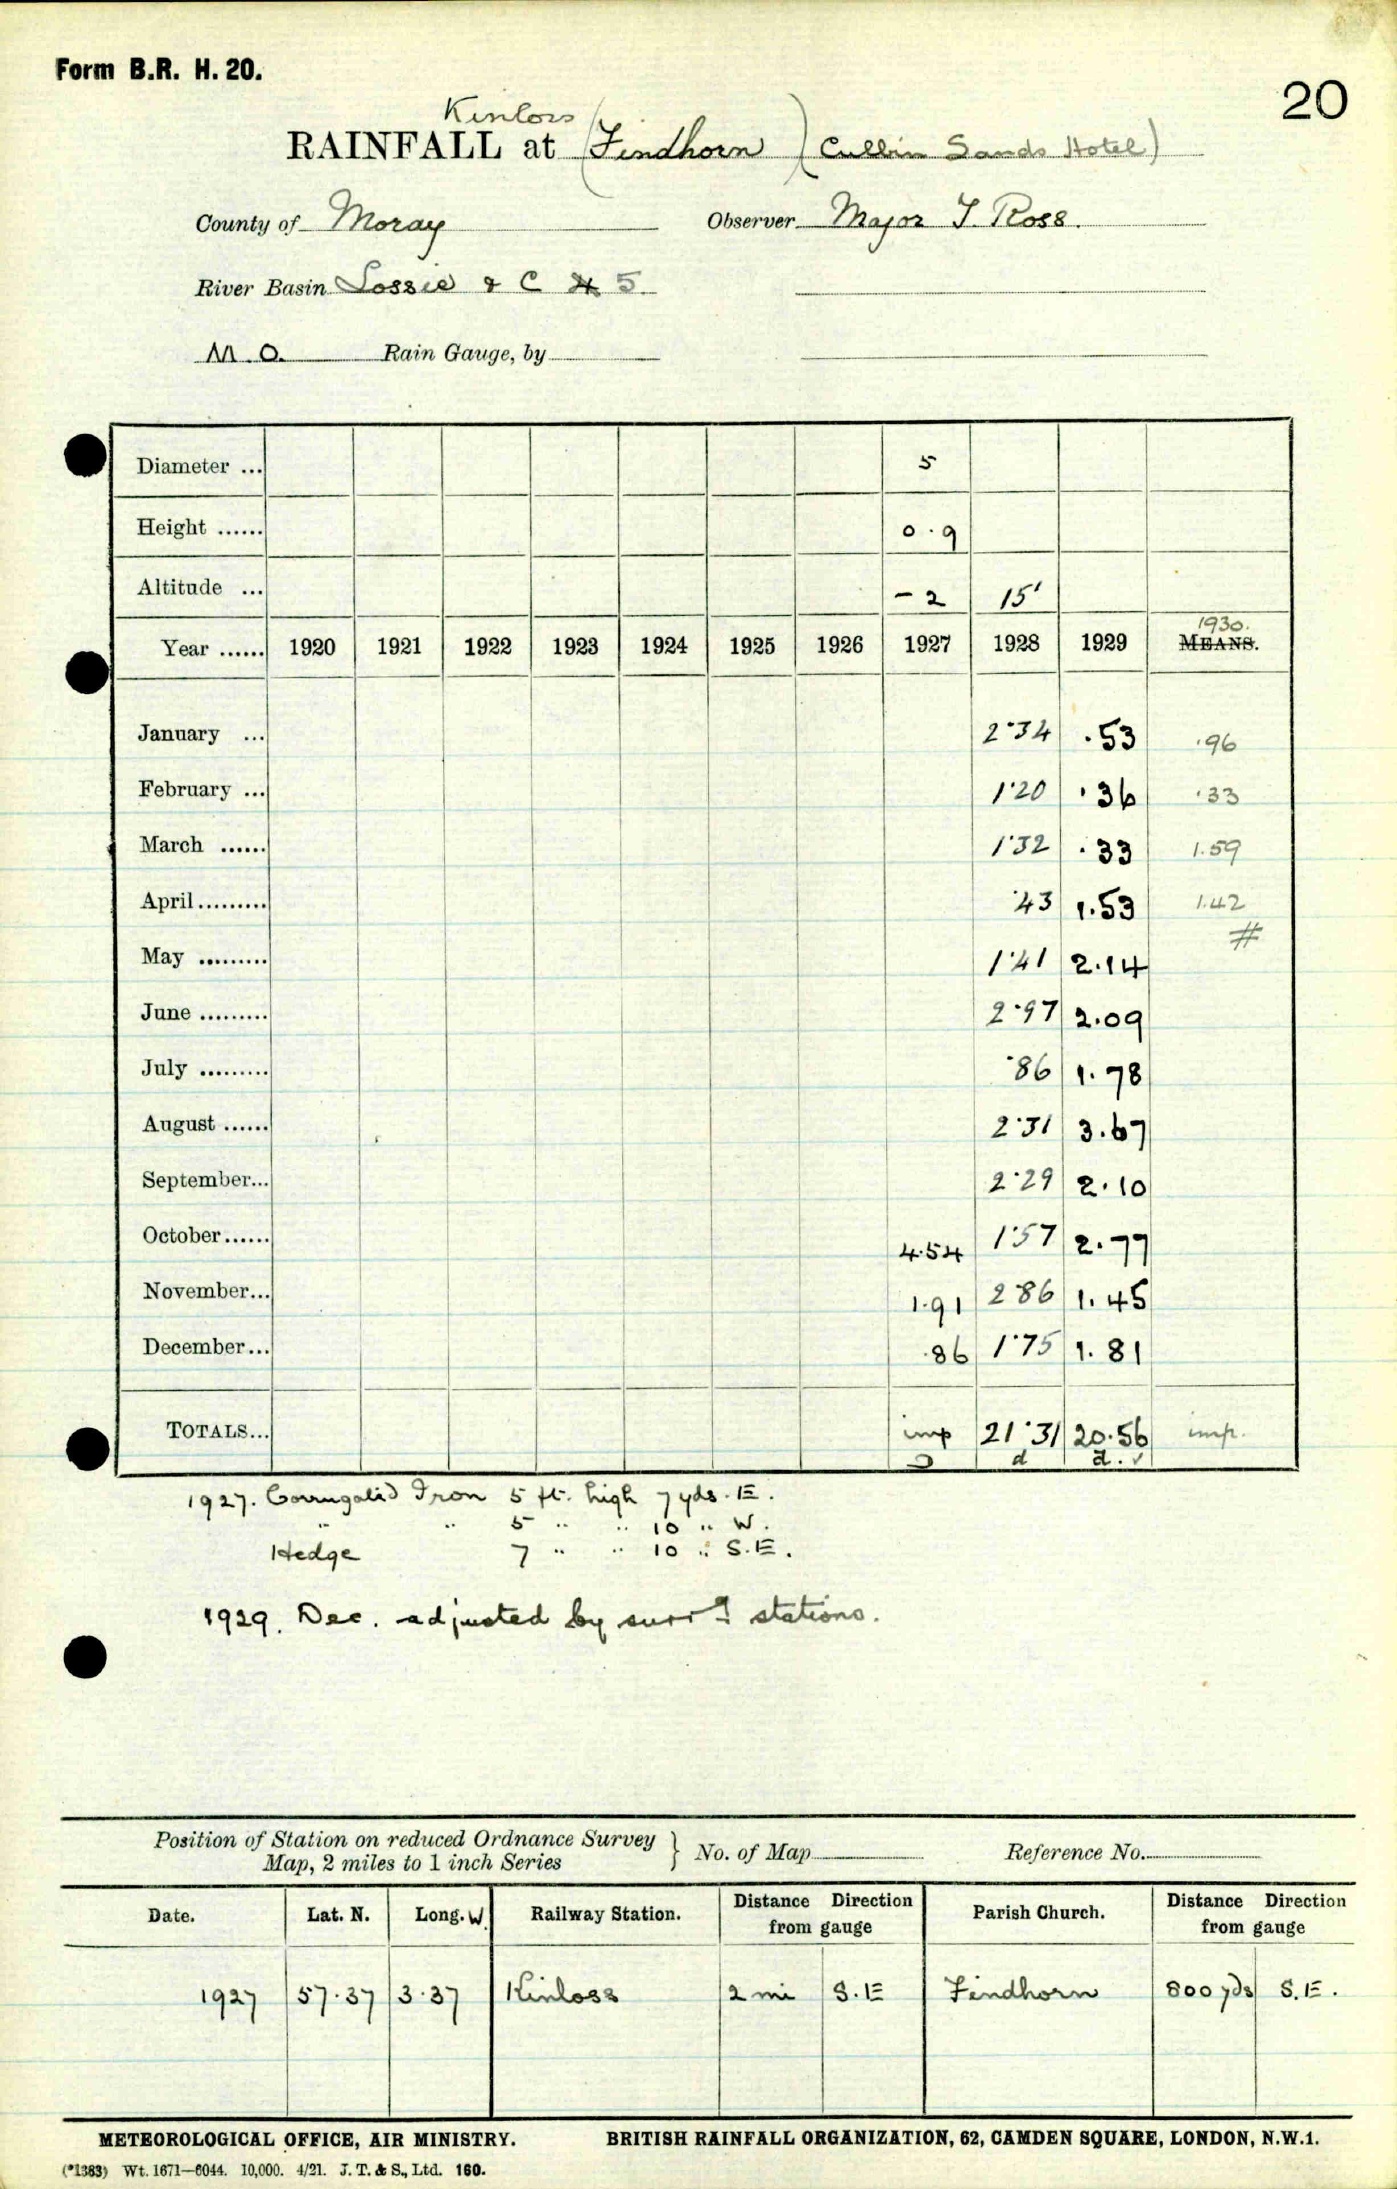 Form B.R. H. 20.
20
Kinloss
RAINFALL at (Findhorn) (Culbin Sands Hotel)
County of Moray Observer Major T. Ross.
River Basin Lossie & C 4 5.
M.O. Rain Gauge, by
Diameter ... 5
Height ...... 0.9
Altitude ... - 2 15'
1930.
Year ...... 1920 1921 1922 1923 1924 1925 1926 1927 1928 1929 MEANS.
January ... 2.34 .53 .96
February ... 1.20 .36 .33
March ...... 1.32 .33 1.59
April ......... .43 1.53 1.42
#
May ......... 1.41 2.14
June ......... 2.97 2.09
July ......... .86 1.78
August ...... 2.31 3.67
September... 2.29 2.10
October...... 4.54 1.57 2.77
November... 1.91 2.86 1.45
December... .86 1.75 1.81
TOTALS... imp 21.31 20.56 imp.
d d. ✓
1927. Corrugated Iron 5 ft. high 7 yds. E.
" " 5 " " 10 " W.
Hedge 7 " " 10 " S.E.
1929. Dec. adjusted by surrg stations.
Position of Station on reduced Ordnance Survey
Map, 2 miles to 1 inch Series } No. of Map Reference No.
Date. Lat. N. Long. W. Railway Station. Distance Direction from gauge Parish Church. Distance Direction from gauge
1927 57.37 3.37 Kinloss 2 mi S.E Findhorn 800 yds S.E.
METEOROLOGICAL OFFICE, AIR MINISTRY. BRITISH RAINFALL ORGANIZATION, 62, CAMDEN SQUARE, LONDON, N.W.1.
(*1383) Wt. 1671—6044. 10,000. 4/21. J. T. & S., Ltd. 160.